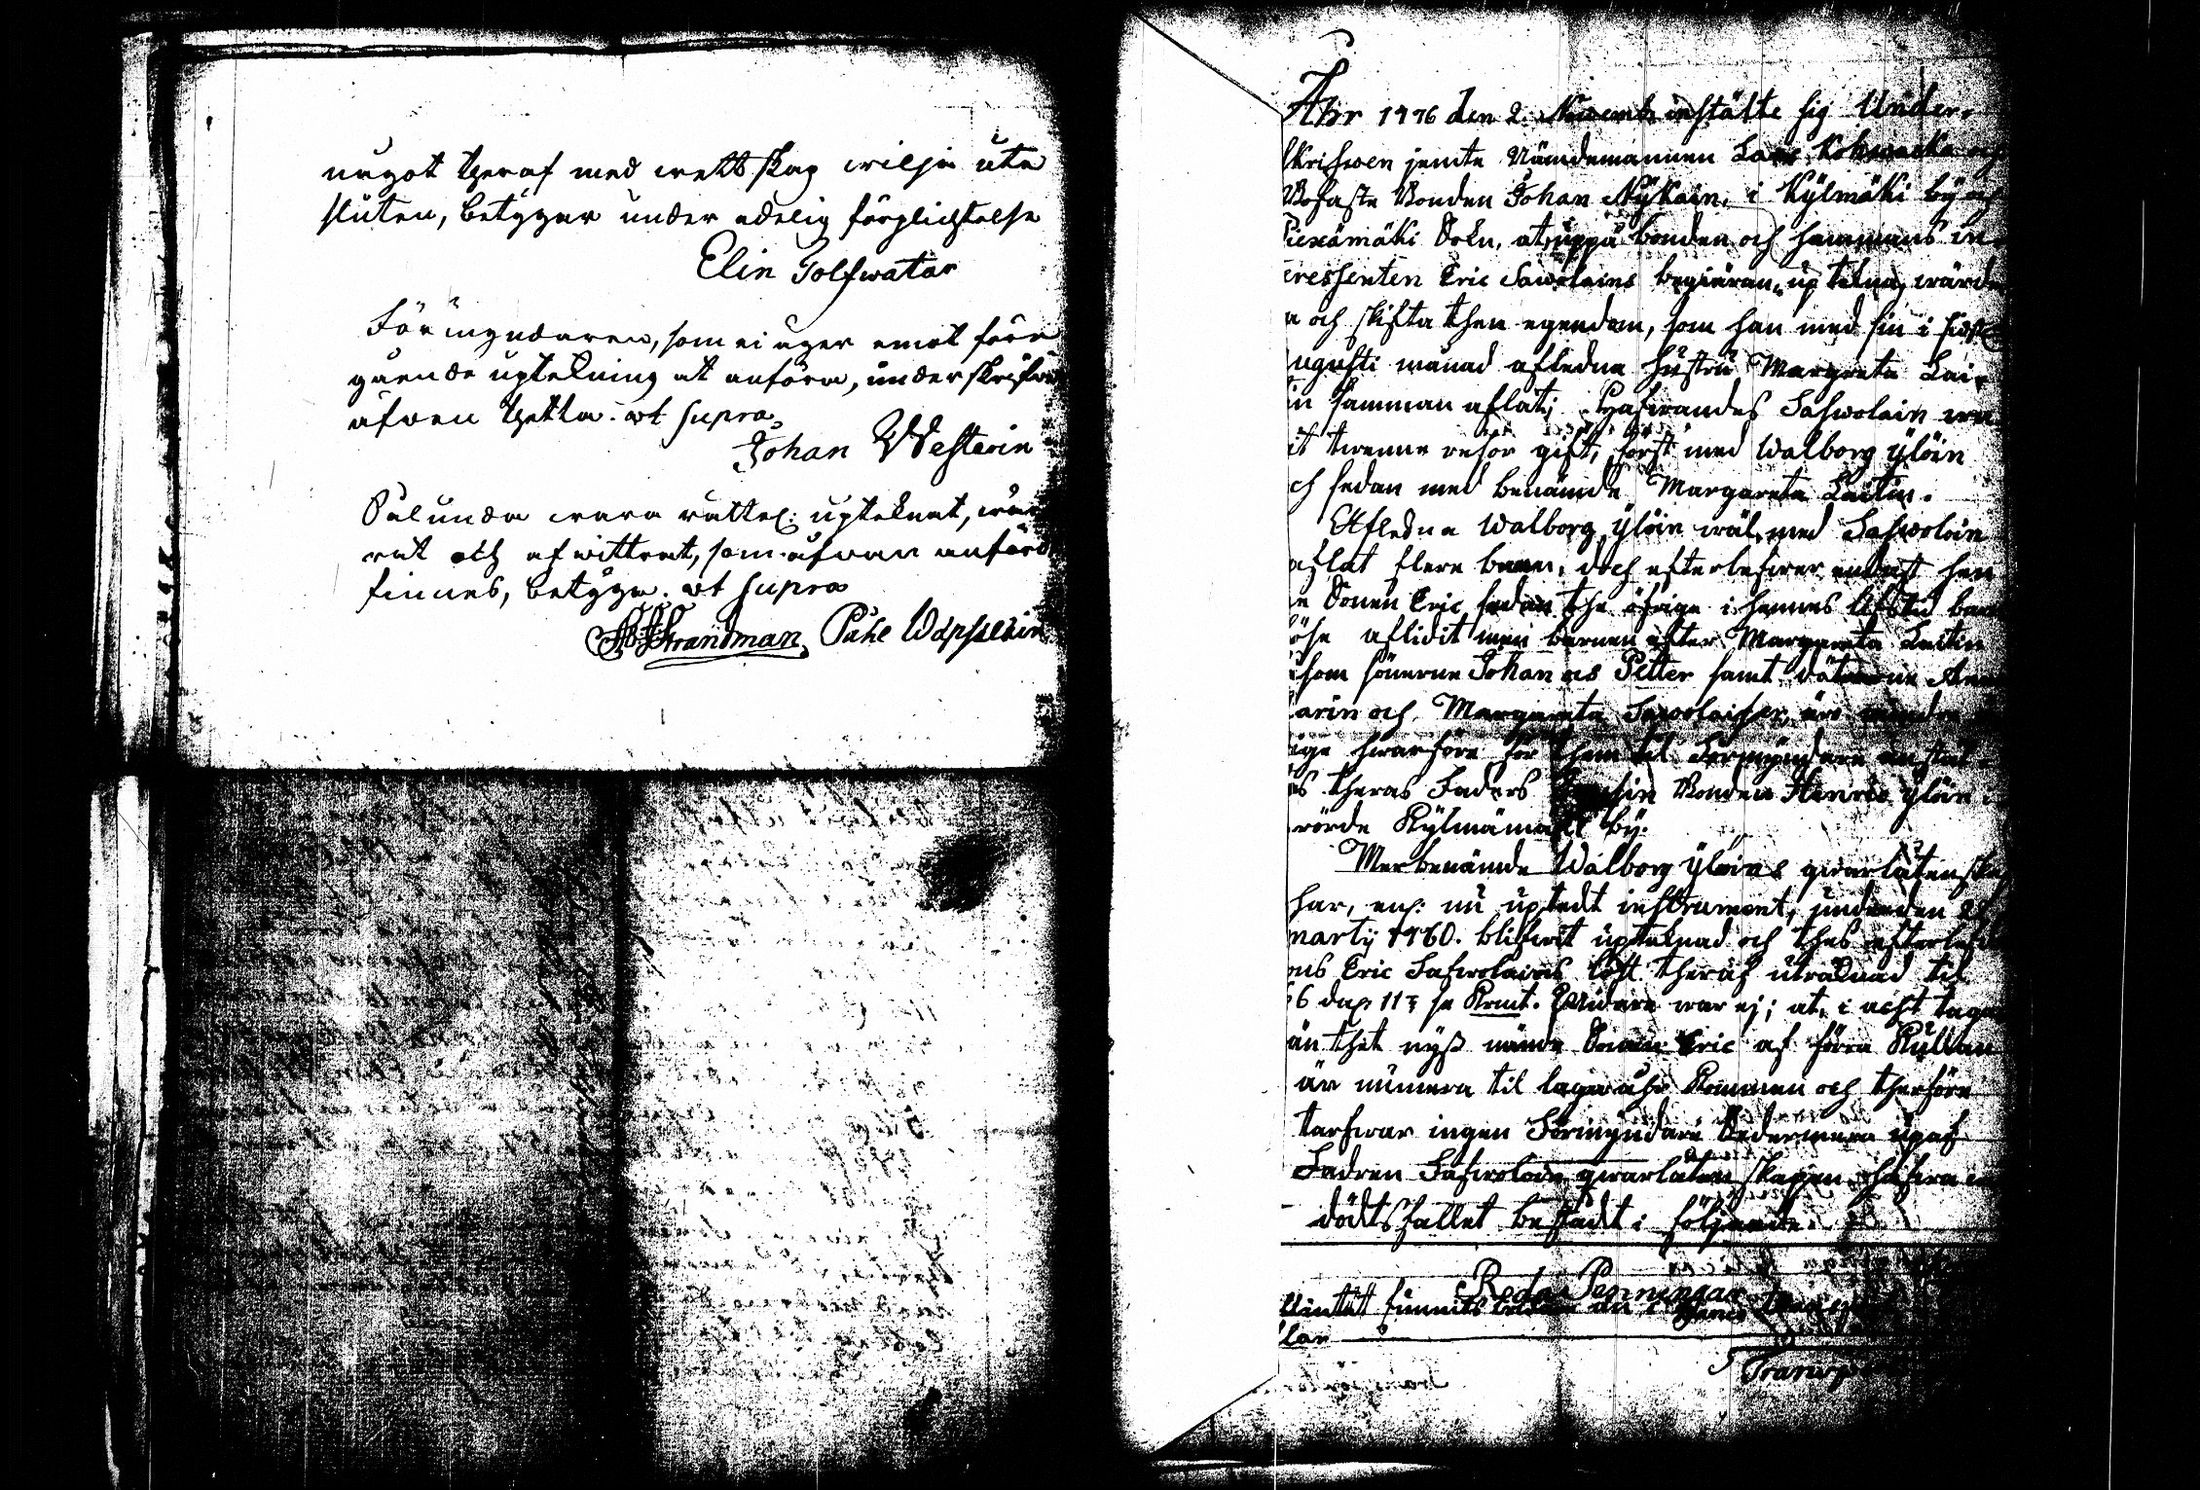 nugot theraf med wettskap wilja ute
sluten, betyger under edelig förplichtelse
Elin Tolfwatar
Förmyndaren, som ei äger emot före
gående uptekning at anföra, underskrifwer
äfven thetta. ut supra
Johan Westerin
Sålunda wara rättel: upteknat, wär
rat och afwittrat, som ofvan anfördt
finnes, betyga. ut supra
Strandman Påhl
Åhr 1776 den 2. Novemb instälte sig Under-
skrifwen jemte Nämdemannen Lars och
Bofaste Bonden Johan Nykäin, i Kylmäki by och
Piexämäki Sokn, at uppå bonden och hemmans in-
ressenten Eric Sawolains begiäran, up tekna, wärde
a och skifta then egendom, som han med sin i sidst
ugusti månad afledna hustru Margreta Lai-
in samman aflat; Hafwandes Safwolain wa
it twenne resor gift, först med Walborg Ylöin
ch sedan med benämde Margareta Laitin.
Afledna Walborg Ylöin wäl med Safwolain
aflat flere barn, doch efterlefwer endast hen
e Sonen Eric sedan the öfrige i hennes lifstid barn
löse aflidit men barnen efter Margareta Laitin
såsom sönerne Johan os Petter samt dötrarne Ann
arin och Margareta Sawolaiher, äro mindre
ige hwarföre för them til Förmyndare anstäl
s theras Faders Bonden Henric Ylöin i
rörde Kylmämäki by.
Merbenämde Walborg Ylöins qwarlåtenska
har, enl: nu uptedt instrument, under den
marty 1760. blifwit upteknad och thes efterlefd
ns Eric Safwolains lott theraf uträknad til
6 dal. 11 3/4 sr Krmt. Widare war ej; at i acht taga
än thet nyss nämde Sonen Eric af förra Kullan
är numera til laga åhr kommen och therföre
tarfwar ingen Förmyndare Sedermera upaf
Fadren Safwolain qwarlåten skapen, hafwa
dödtsfallet bestådt i följande.
Reda Penningar
lan
Transp